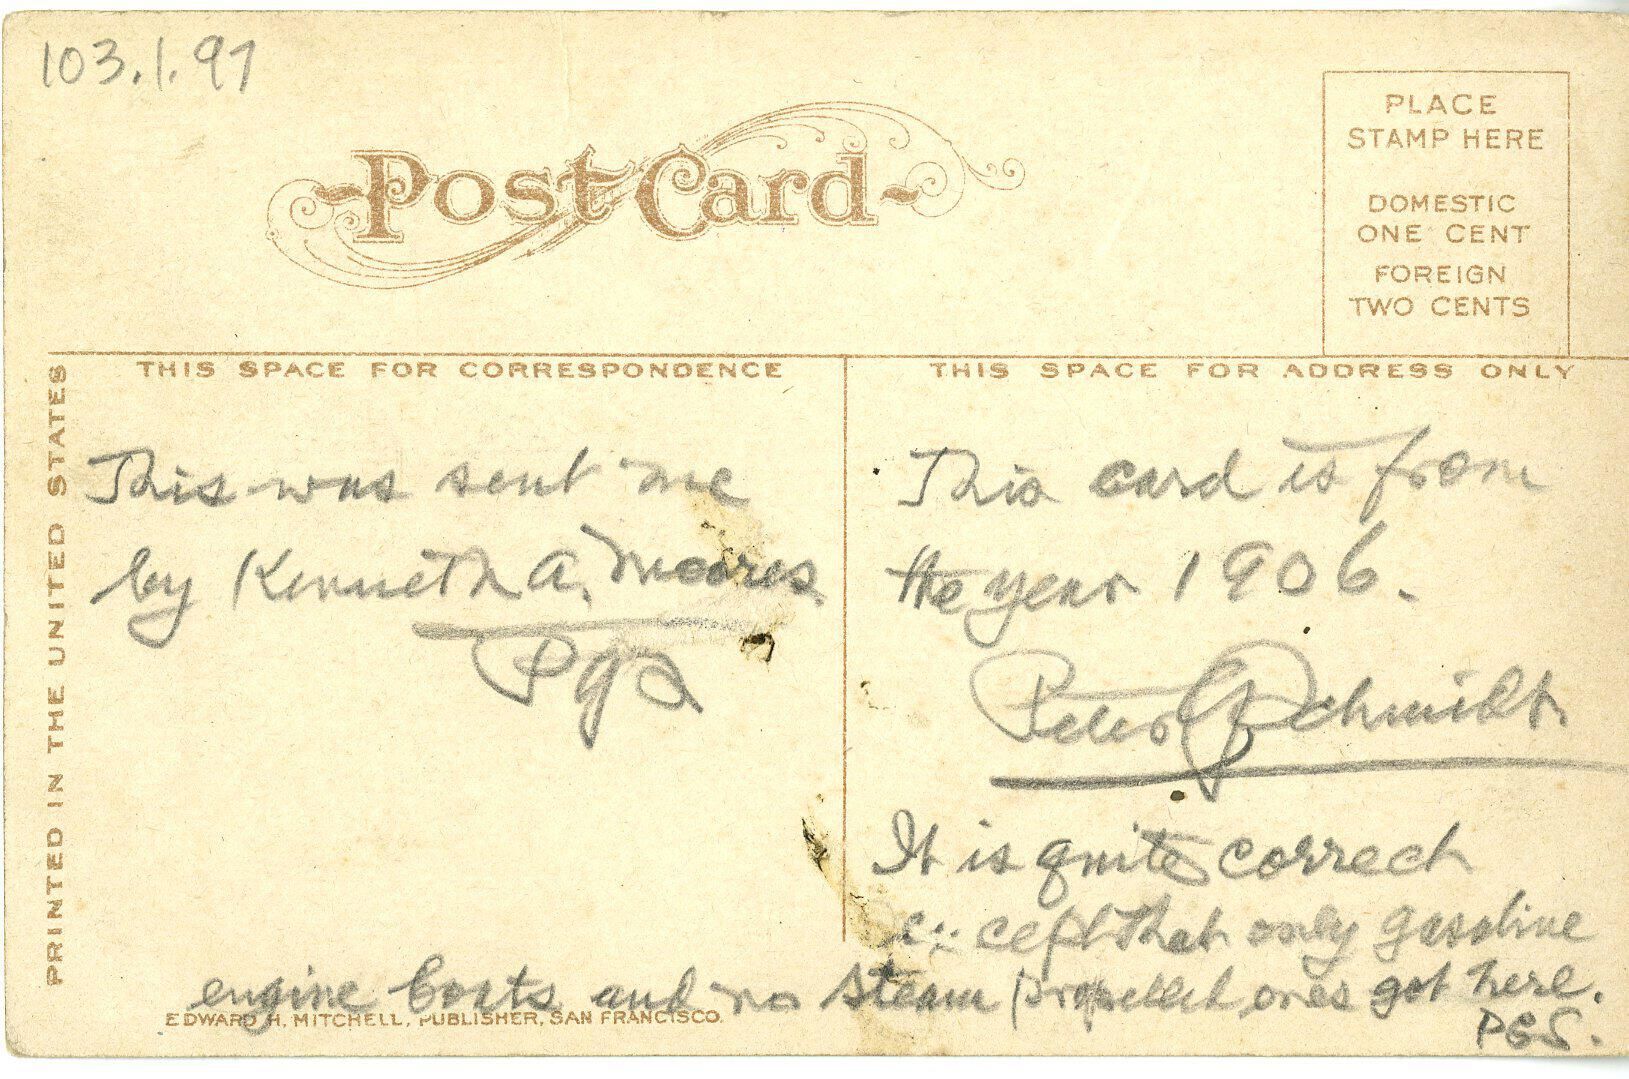 103.1.97
Post Card
PLACE
STAMP HERE
DOMESTIC
ONE CENT
FOREIGN
TWO CENTS
THIS SPACE FOR CORRESPONDENCE
THIS SPACE FOR ADDRESS ONLY
PRINTED IN THE UNITED STATES
This was sent me
by Kenneth A. Moores
PGS
This card is from
the year 1906.
Peter G Schmidt
It is quite correct
except that only gasoline
engine boats and no steam propelled ones got here.
PGS.
EDWARD H. MITCHELL, PUBLISHER, SAN FRANCISCO.